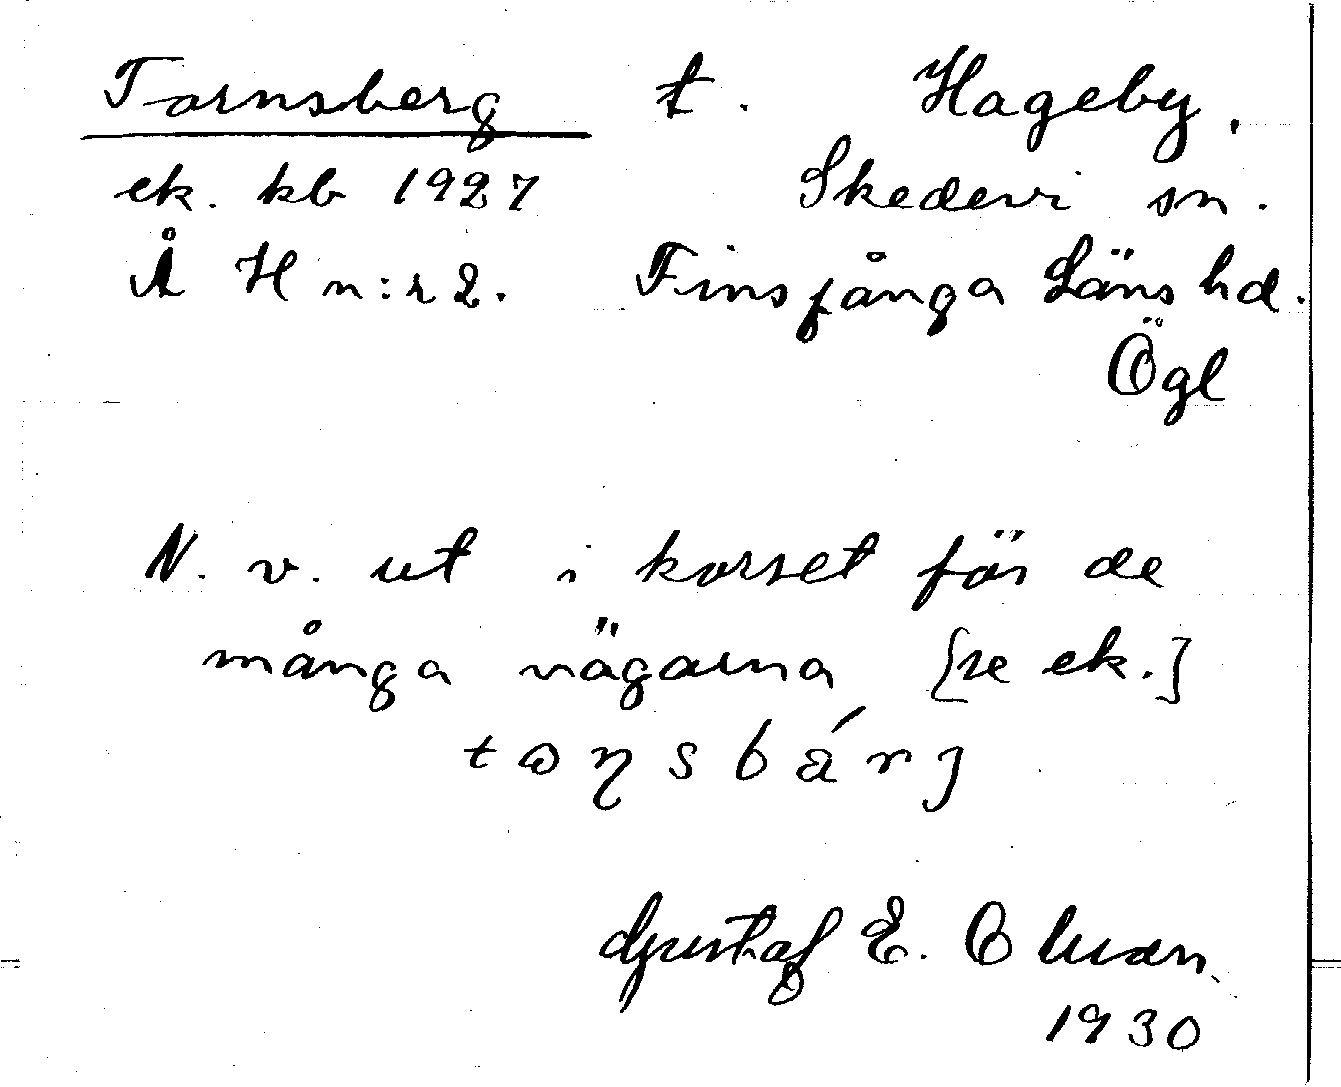 Tornsberg t. Hageby,
ek. kb 1927 Skedevi sn.
Å H n:r 2. Finspånga Läns hd.
Ögl
N. v. ut i korset för de
många vägarna [se ek.]
Gustaf E. Oluan
1930